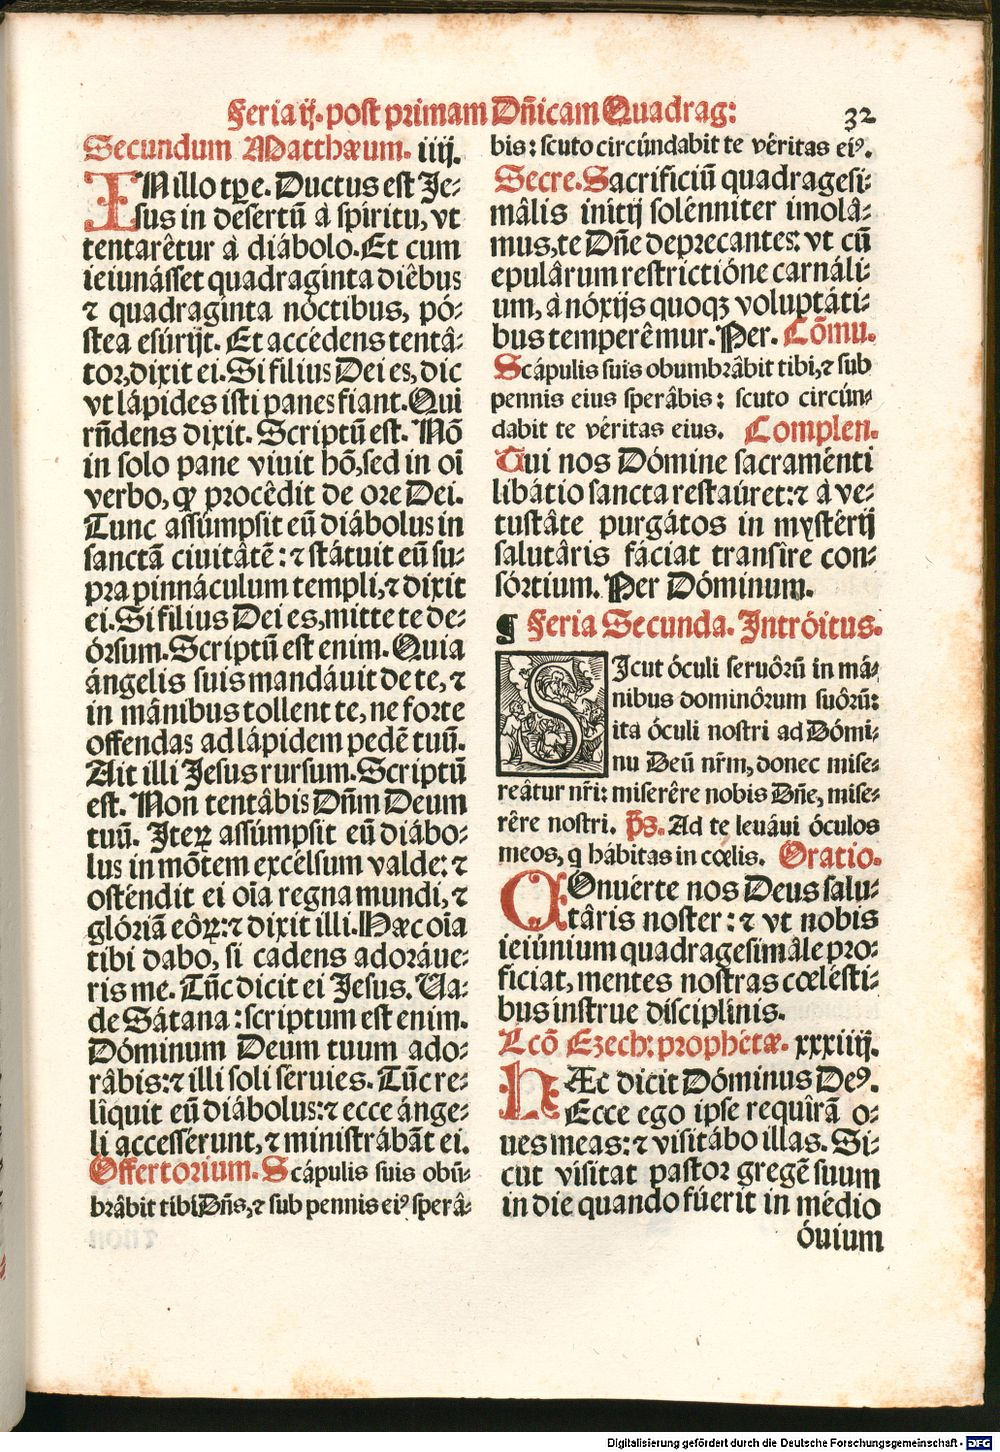 Feria ij. post primam Dñicam Quadrag:
32
Secundum Matthæum. iiij.
IN illo tpe. Ductus est Je-
sus in desertū à spiritu, vt
tentarêtur à diábolo. Et cum
ieiunásset quadraginta diêbus
⁊ quadraginta nóctibus, pó-
stea esúrijt. Et accédens tentâ-
tor, dixit ei. Si filius Dei es, dic
vt lápides isti panes fiant. Qui
rñdens dixit. Scriptū est. Nō
in solo pane viuit hō, sed in oī
verbo, qꝫ procêdit de ore Dei.
Tunc assúmpsit eū diábolus in
sanctā ciuitâtē: ⁊ státuit eū su-
pra pinnáculum templi, ⁊ dixit
ei. Si filius Dei es, mitte te de-
órsum. Scriptū est enim. Quia
ángelis suis mandáuit de te, ⁊
in mánibus tollent te, ne forte
offendas ad lápidem pedē tuū.
Ait illi Jesus rursum. Scriptū
est. Non tentâbis Dñm Deum
tuū. Iteꝝ assúmpsit eū diábo-
lus in mōtem excélsum valde: ⁊
osténdit ei oīa regna mundi, ⁊
glóriā eôꝝ: ⁊ dixit illi. Hæc oīa
tibi dabo, si cadens adoráue-
ris me. Tūc dicit ei Jesus. Va-
de Sátana: scriptum est enim.
Dóminum Deum tuum ado-
râbis: ⁊ illi soli séruies. Tūc re-
líquit eū diábolus: ⁊ ecce ánge-
li accessérunt, ⁊ ministrábāt ei.
Offertorium. Scápulis suis obū-
brâbit tibi Dñs, ⁊ sub pennis eiꝰ sperâ-
bis: scuto circúndabit te véritas eiꝰ.
Secre. Sacrificiū quadragesi-
mâlis initij solénniter imolâ-
mus, te Dñe deprecantes: vt cū
epulârum restrictióne carnáli-
um, à nóxijs quoqꝫ voluptáti-
bus temperêmur. Per. Cōmu.
Scápulis suis obumbrâbit tibi, ⁊ sub
pennis eius sperâbis: scuto circún-
dabit te véritas eius. Complen.
Tui nos Dómine sacraménti
libátio sancta restaúret: ⁊ à ve-
tustâte purgátos in mystêrij
salutâris fáciat transíre con-
sórtium. Per Dóminum.
¶ Feria Secunda. Intróitus.
SIcut óculi seruôrū in má-
nibus dominôrum suôrū:
ita óculi nostri ad Dómi-
nu Deū nr̄m, donec mise-
reâtur nr̄i: miserêre nobis Dñe, mise-
rêre nostri. ps. Ad te leuáui óculos
meos, q hábitas in cœlis. Oratio.
COnuérte nos Deus salu-
târis noster: ⁊ vt nobis
ieiúnium quadragesimâle pro-
ficiat, mentes nostras cœlésti-
bus instrue disciplínis.
Lcō Ezech: prophétæ. xxxiiij.
HÆc dicit Dóminus Deꝰ.
Ecce ego ipse requírā o-
ues meas: ⁊ visitábo illas. Si-
cut vísitat pastor gregē suum
in die quando fúerit in médio
óuium
Digitalisierung gefördert durch die Deutsche Forschungsgemeinschaft - DFG